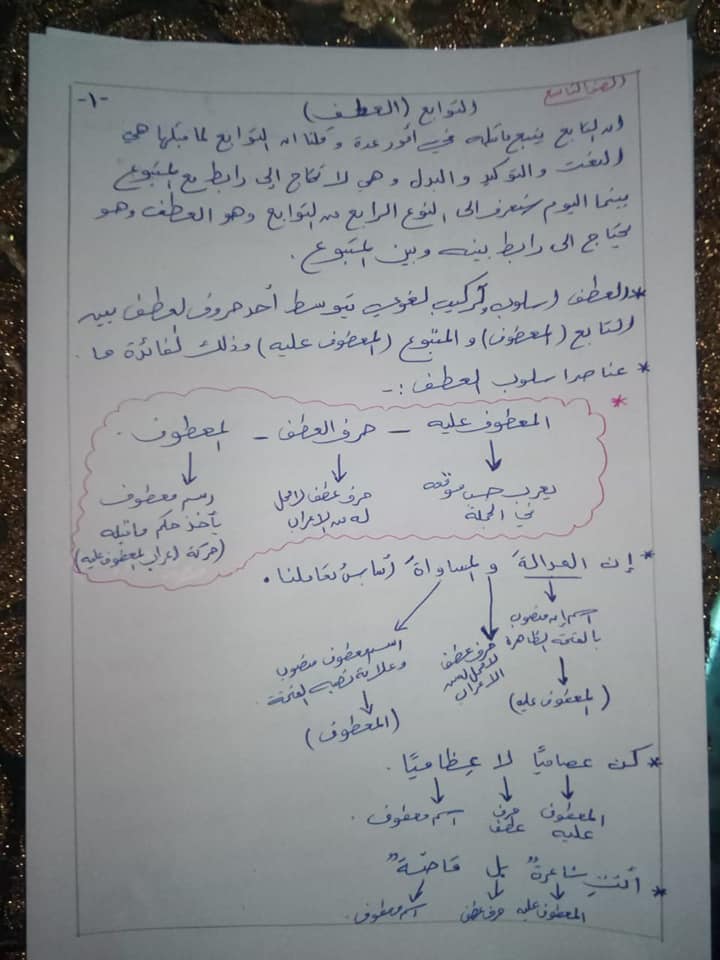 الصف التاسع
-١-
التوابع (العطف)
ان التابع يتبع ماقبله في أمور عدة وقلنا ان التوابع لما قبلها هي
النعت والتوكيد والبدل وهي لا تحتاج إلى رابط مع المتبوع
بينما اليوم سنتعرف الى النوع الرابع من التوابع وهو العطف وهو
يحتاج الى رابط بينه وبين المتبوع.
* العطف اسلوب وتركيب لغوي يتوسط أحد حروف العطف بين
التابع (المعطوف) والمتبوع (المعطوف عليه) وذلك لفائدة ما.
* عناصر اسلوب العطف :-
* المعطوف عليه - حرف العطف - المعطوف.
يعرب حسب موقعه في الجملة
حرف عطف لا محل له من الاعراب
اسم معطوف يأخذ حكم ماقبله (حركة إعراب المعطوف عليه)
* إن العدالةَ والمساواةَ أساسُ تعاملنا.
اسم إن منصوب بالفتحة الظاهرة
(المعطوف عليه)
حرف عطف لا محل له من الاعراب
اسم معطوف منصوب وعلامة نصبه الفتحة
(المعطوف)
* كن عصاميًّا لا عِظاميًّا.
المعطوف عليه
حرف عطف
اسم معطوف.
* أنتِ شاعرةٌ بل قاصّةٌ
المعطوف عليه
حرف عطف
اسم معطوف.